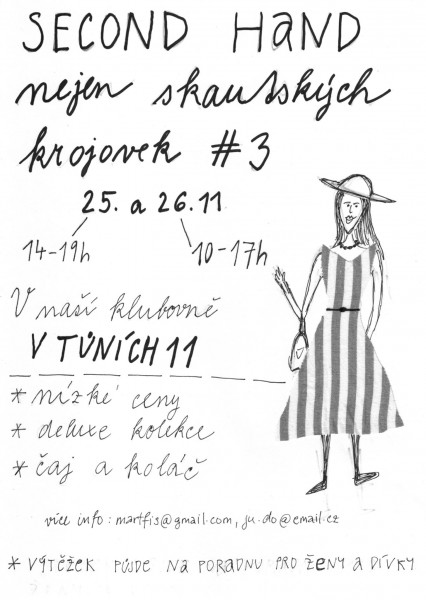 SECOND HAND
nejen skautských
krojovek #3
25. a 26.11
14-19h 10-17h
V naší klubovně
V TŮNÍCH 11
* nízké ceny
* deluxe kolekce
* čaj a koláč
více info: martfis@gmail.com, ju-do@email.cz
* VÝTĚŽEK PŮJDE NA PORADNU PRO ŽENY A DÍVKY